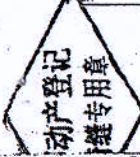 动产登记
缝专用章